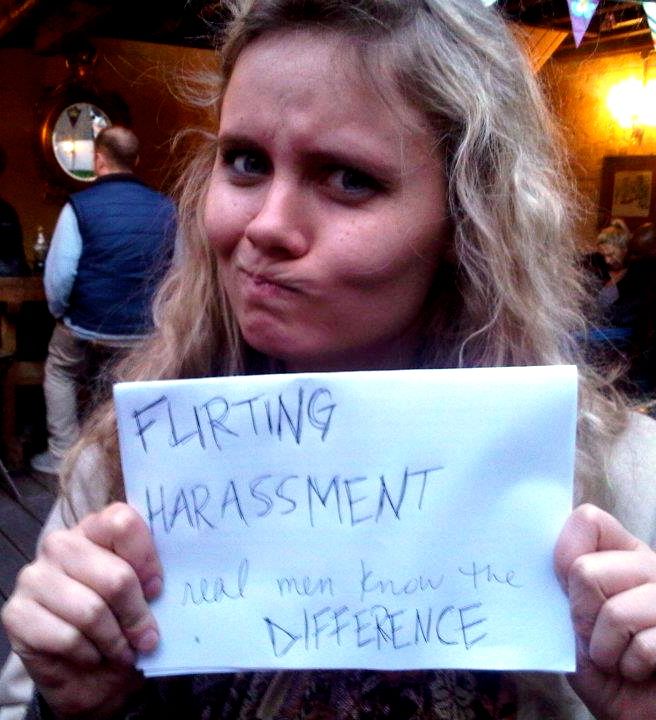 FLIRTING
HARASSMENT
real men know the
DIFFERENCE